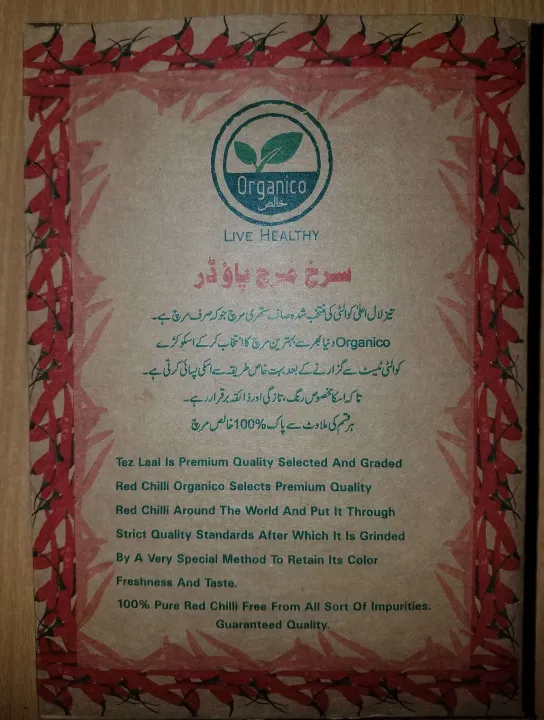 Organico
خالص
LIVE HEALTHY
سرخ مرچ پاؤڈر
تیز لال اعلیٰ کوالٹی کی منتخب شدہ صاف ستھری مرچ جو کہ صرف مرچ ہے۔
Organico دنیا بھر سے بہترین مرچ کا انتخاب کر کے اسکو کڑے
کوالٹی ٹیسٹ سے گزارنے کے بعد بہت خاص طریقہ سے اسکی پسائی کرتی ہے۔
تاکہ اسکا مخصوص رنگ، تازگی اور ذائقہ برقرار رہے۔
ہر قسم کی ملاوٹ سے پاک %100 خالص مرچ
Tez Laal Is Premium Quality Selected And Graded
Red Chilli Organico Selects Premium Quality
Red Chilli Around The World And Put It Through
Strict Quality Standards After Which It Is Grinded
By A Very Special Method To Retain Its Color
Freshness And Taste.
100% Pure Red Chilli Free From All Sort Of Impurities.
Guaranteed Quality.